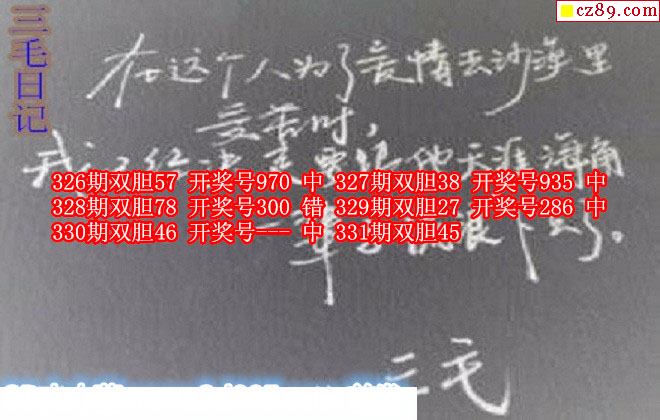 cz89.com
三毛日记
在这个人为了爱情去沙漠里
受苦时，
我已经决定要跟他天涯海角
326期双胆57 开奖号970 中 327期双胆38 开奖号935 中
328期双胆78 开奖号300 错 329期双胆27 开奖号286 中
330期双胆46 开奖号--- 中 331期双胆45
一辈子 下去了。
三毛